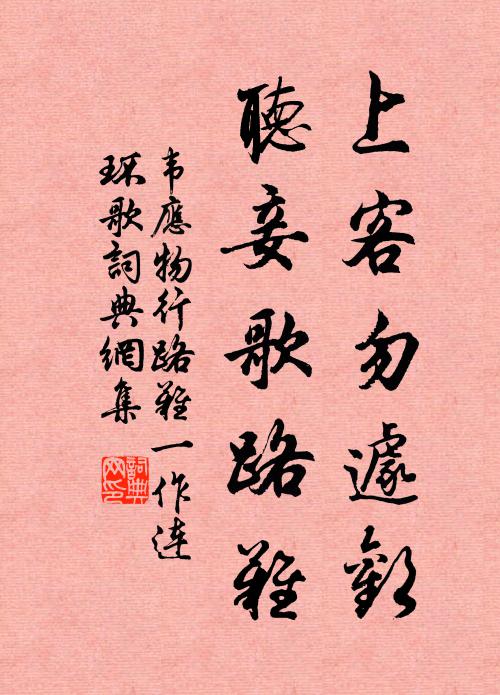 上客勿遽歡
聽妾歌路難
韦應物行路難一作连
环歌詞典網集
詞典网印